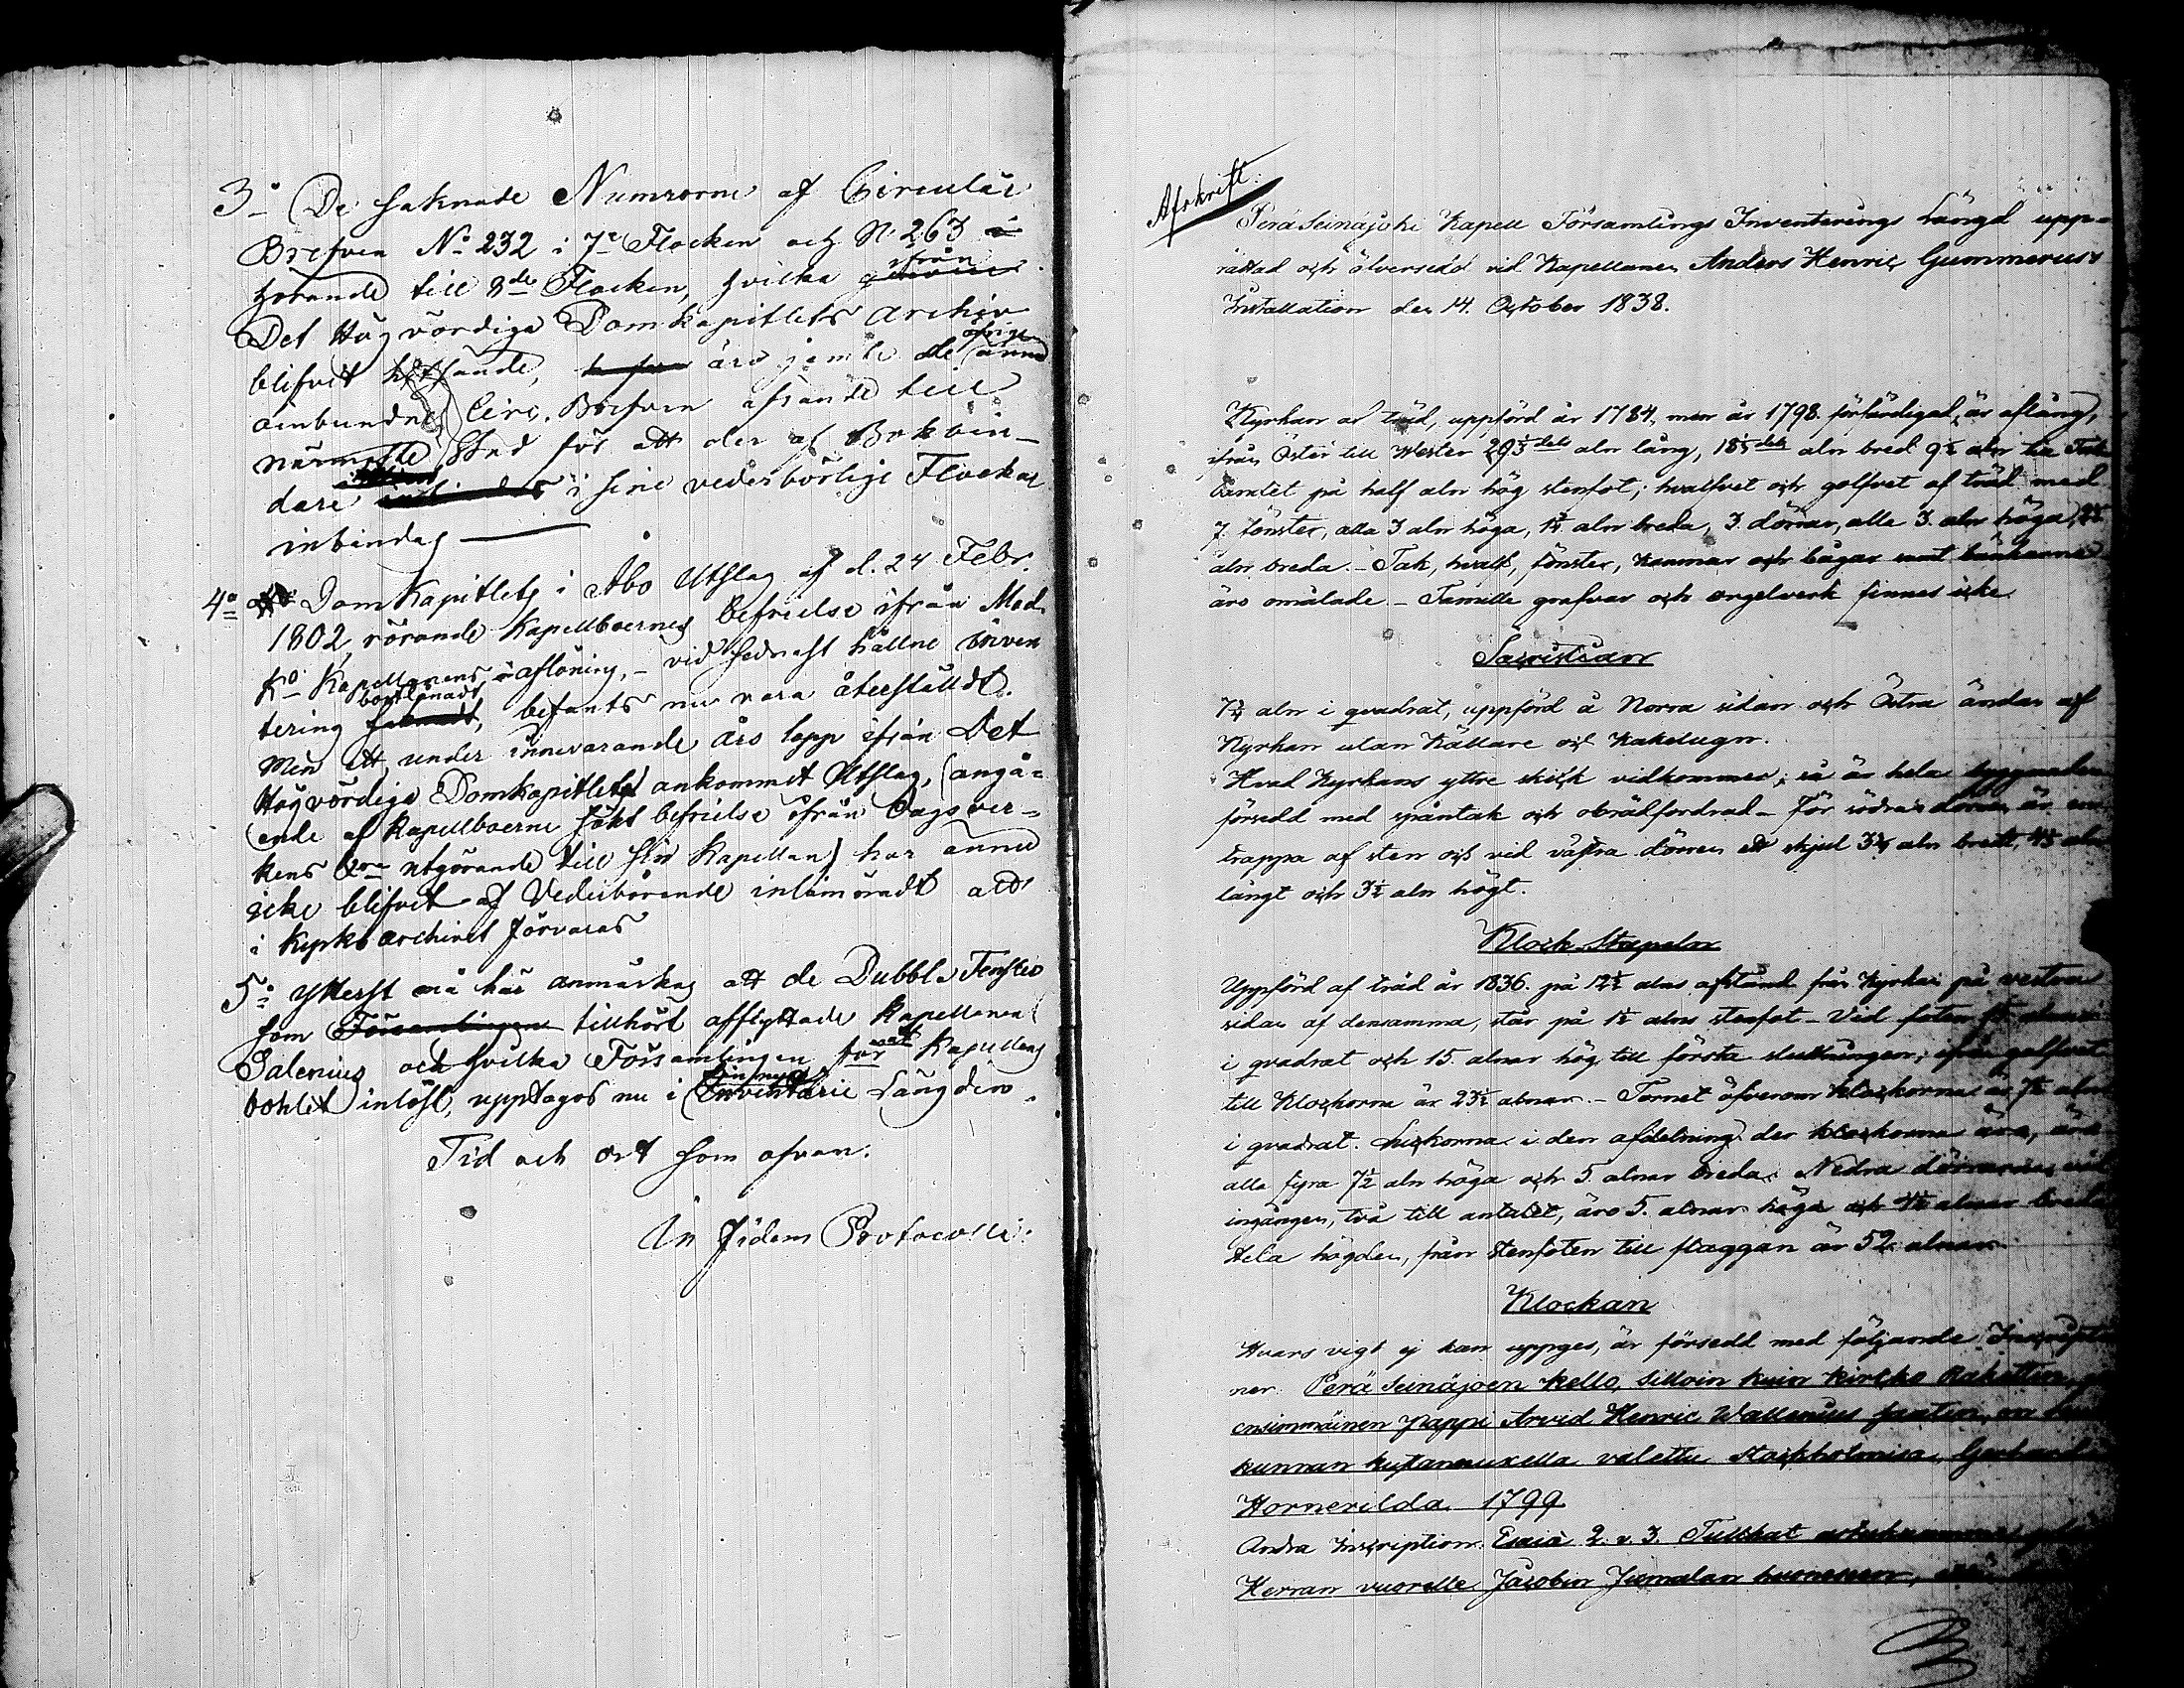 3o De saknade Numrorne af Circulär
Brefven No 232 i 7e Flocken och N. 263
hörande till 8de Flocken, hvilka ifrån
Det Högvördiga Domkapitlets Archiv
blifvit äro jemte de öfrige ännu
oinbundne Circ. Brefven afsände till
närmaste Stad för att der af Bokbin-
dare i sine vederbörlige Flockar
inbindas
4o Domkapitlets i Åbo Utslag af d. 24 Febr.
1802, rörande Kapellboernes befrielse ifrån Mod.
K. Kapellanens aflöning, - vid sednast hållne Inven
tering bortlånadt, befants nu vara återstäldt.
Men ett under innevarande års lopp ifrån Det
Högvördige Domkapitlet ankommet Utslag, (angå-
ende af Kapellboerne sökt befrielse ifrån Dagsver-
kens utgörande till sin Kapellan) har ännu
icke blifvit af Vederbörande inlämnadt att
i Kyrko archivet förvaras
5o Ytterst må här anmärkas att de Dubbla Fenster
som Församlingen tillhört afflyttade Kapellanen
Salenius och hvilka Församlingen för Kapellans
bohlet inlöst, upptagos nu i Inventarie Längden.
Tid och ort som ofvan.
In fidem Protocolli:
Afskrift.
Peräseinäjoki Kapell Församlings Inventerings Längd upp-
rättad och öfversedd vid Kapellanen Anders Henric Gummerus's
Installation den 14. October 1838.
Kyrkan af träd, uppförd år 1784, men år 1798. förfärdigad, är aflång,
ifrån Öster till Wester 29 aln lång, 18 aln bred 9½ aln
på half aln hög stenfot; hvalfvet och golfvet af träd med
7. fönster, alla 3 aln höga, aln breda, 3. dörrar, alla 3. aln höga,
aln breda. - Tak, hvalf, fönster, karmar och bågar samt bänkarne
äro omålade - Famille grafvar och orgelverk finnes icke
Sacristian
7¾ aln i qvadrat, uppförd å Norra sidan och Östra ändan af
Kyrkan utan Källare och Kakelugn.
Hvad Kyrkans yttre skick vidkommer, så är hela byggnaden
försedd med spåntak och brädfordrad - För södra dörren är en
trappa af sten och vid västra dörren ett skjul 3¾ aln bredt, aln
långt och 3½ aln högt.
Klock-Stapeln
Uppförd af träd år 1836. på 12½ alns afstånd från Kyrkan på vestra
sidan af densamma, står på 1½ alns stenfot - Vid foten alnar
i qvadrat och 15. alnar hög till första sluttningen, ifrån golfvet
till Klockorna är 23½ alnar. - Tornet öfverom Klockorna är 7½ aln
i qvadrat. Luckorna i den afdelning der klockorna äro, äro
alla fyra 7½ aln höga och 5. alnar breda. Nedra dörrarne, vid
ingången, två till antalet, äro 5. alnar höga och 4½ alnar breda
Hela högden, från stenfoten till flaggan är 52 alnar.
Klockan
Hvars vigt ej kan uppges, är försedd med följande Inscriptio
ner. Perä Seinäjoen kello, silloin kuin kircko Rakettin,
ensimmäinen pappi Arvid Henric Wallenius saatin, on
kunnan kustannuxella valettu Stockholmisa, Gerhard
Hornerilda 1799
Andra Inscription. Esaiä 2. v. 3. Tulkaat astukaamme
Herran vuorelle Jacobin Jumalan huoneseen,